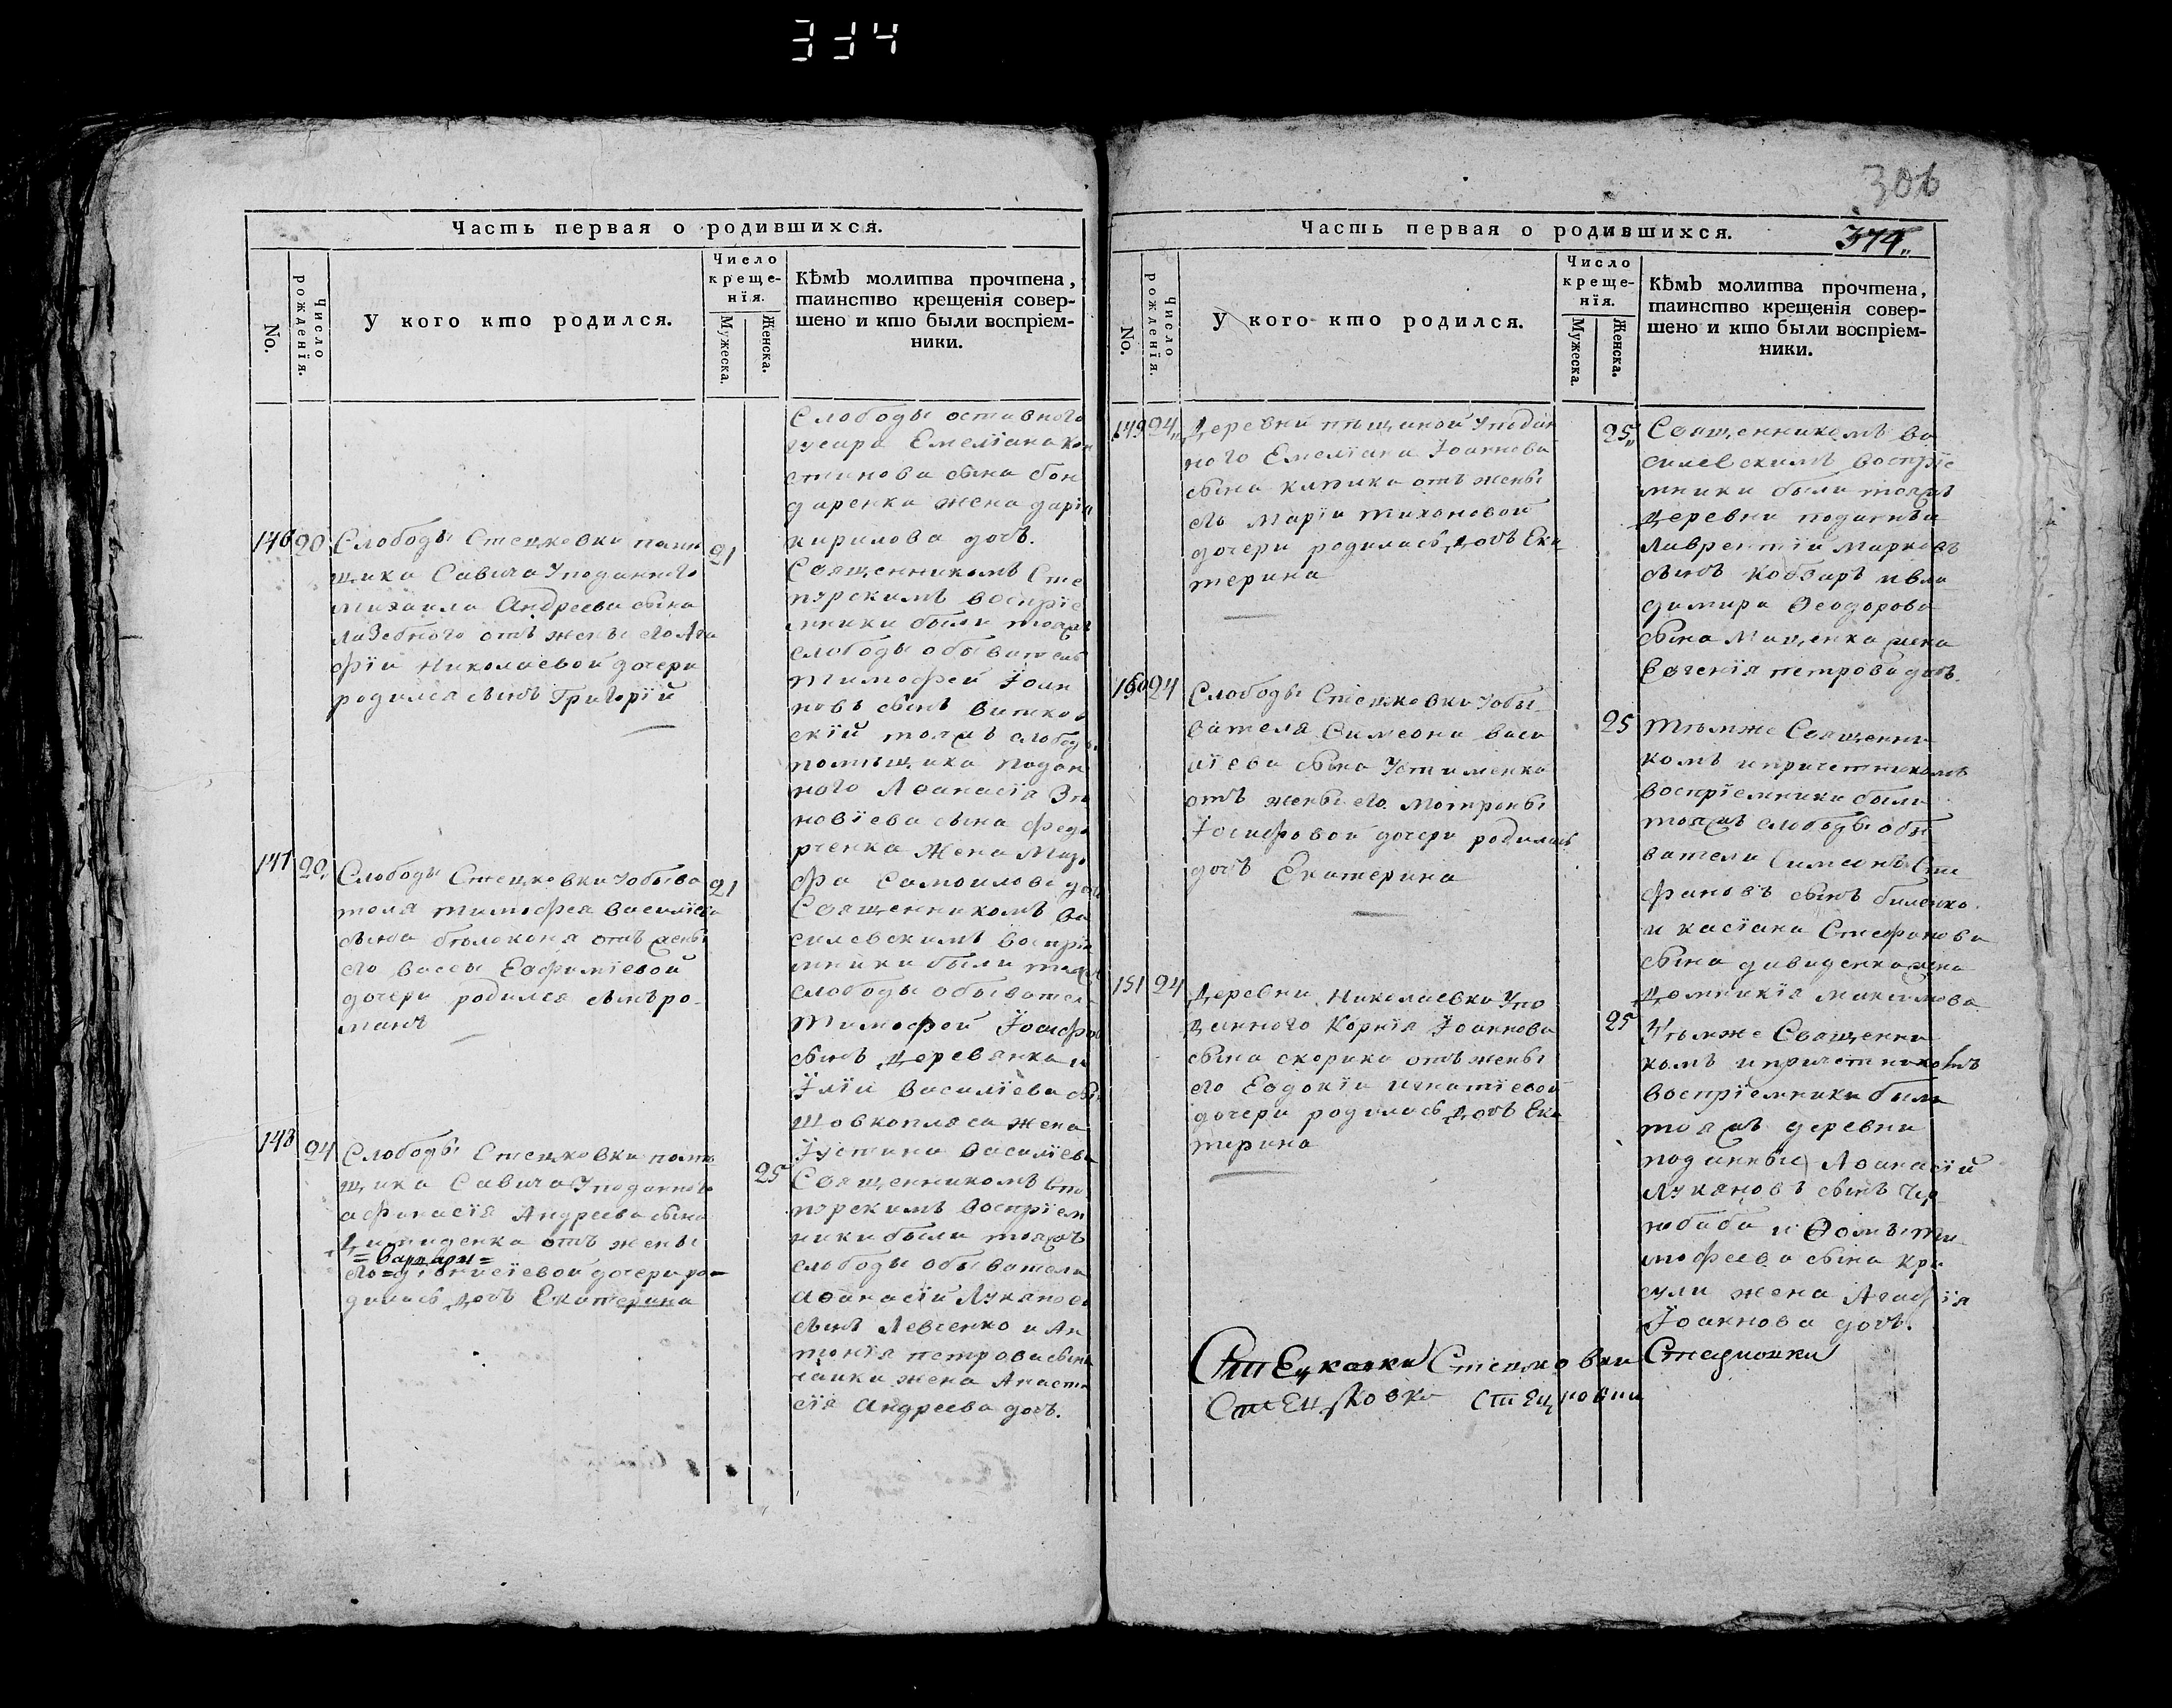 334
Часть первая о родившихся.
No.
Число рожденїя.
У кого кто родился.
Число
креще-
нїя.
Мужеска.
Женска.
Кѣмъ молитва прочтена,
таинство крещенїя совер-
шено и кто были воспрїем-
ники.
Слободы оставного
гусара Емелїана Кон
стинова сына бон
даренка жена дарїа
кирилова дочь.
146 20 Слободы Стецковки помѣ 21
щика Савича У поданного
михаила Андреева сына
лазебного отъ жены его Ага
фїи Николаевой дочери
родился сынъ Григорїй
Священникомъ Сте
пурскимъ воспрїе
мники были тояжъ
слободы обыватель
Тимофей Їоан
новъ сынъ витков
скїй тояжъ слободы
помѣщика подан
ного Аѳанасїя Зѣ
новїева сына федо
рченка жена Мар
фа Самоилова доч
147 20 Слободы Стецковки У обыва 21
теля тимофея василїева
сына бѣлоконя отъ жены
его вассы Евфимїевой
дочери родился сынъ ро-
манъ
Священникомъ ва
силевскимъ воспрїе
мники были тояжъ
слободы обывател
Тимофей Їосифов
сынъ деревянка и
Їлїи василїева сы
шовкопляса жена
Їустина Василїева
148 24 Слободы Стецковки помѣ 25
щика Савича У поданного
афанасїя Андреева сына
демиденка отъ жены
=варвари=
его = дїонисїевой дочери ро=
дилась дочь Екатерина
Священникомъ Сте
пурскимъ воспрїем
ники были тояжъ
слободы обыватели
Аѳанасїй Лукяновъ
сынъ Левченко и Ан
тонїя петрова сына
чаики жена Анаста
сїя Андреева дочь.
306
Часть первая о родившихся.
374
No.
Число рожденїя.
У кого кто родился.
Число
креще-
нїя.
Мужеска.
Женска.
Кѣмъ молитва прочтена,
таинство крещенїя совер-
шено и кто были воспрїем-
ники.
149 24 Деревни пѣщаной У подан 25
ного Емелїана Їоаннова
сына катика отъ жены
его Марїи Тихоновой
дочери родилась дочь Ека
терина
Священникомъ ва
силевскимъ воспрїе
мники были тояжъ
Деревни поданныи
Лаврентїй Марковъ
сынъ кобзарь и вла
димира Ѳеодорова
сына Маценка жена
Евгенїя петрова дочь.
150 24 Слободы Стецковки У обы 25
вателя Симеона васи
лїева сына Устименка
отъ жены его Мотроны
Їосифовой дочери родилась
дочь Екатерина
Тѣмже Священни
комъ и причетникомъ
воспрїемники были
тояжъ слободы обы
ватели Симеонъ Сте
фановъ сынъ биленко
и касїана Стефанова
сына давиденка жена
Домникїя максимова
151 24 Деревни Николаевки У по 25
данного Корнїя Їоаннова
сына скорика отъ жены
его Евдокїи игнатїевой
дочери родилась дочь Ека
терина
Тѣмже Священни
комъ и причетникомъ
воспрїемники были
тояжъ деревни
поданные Аѳанасїй
Лукяновъ сынъ Чер
нобаба и Ѳомы ти
мофеева сына кра
сули жена Агафїя
Їоаннова дочь.
Стецковки Стецковки
Стецковка Стецковки